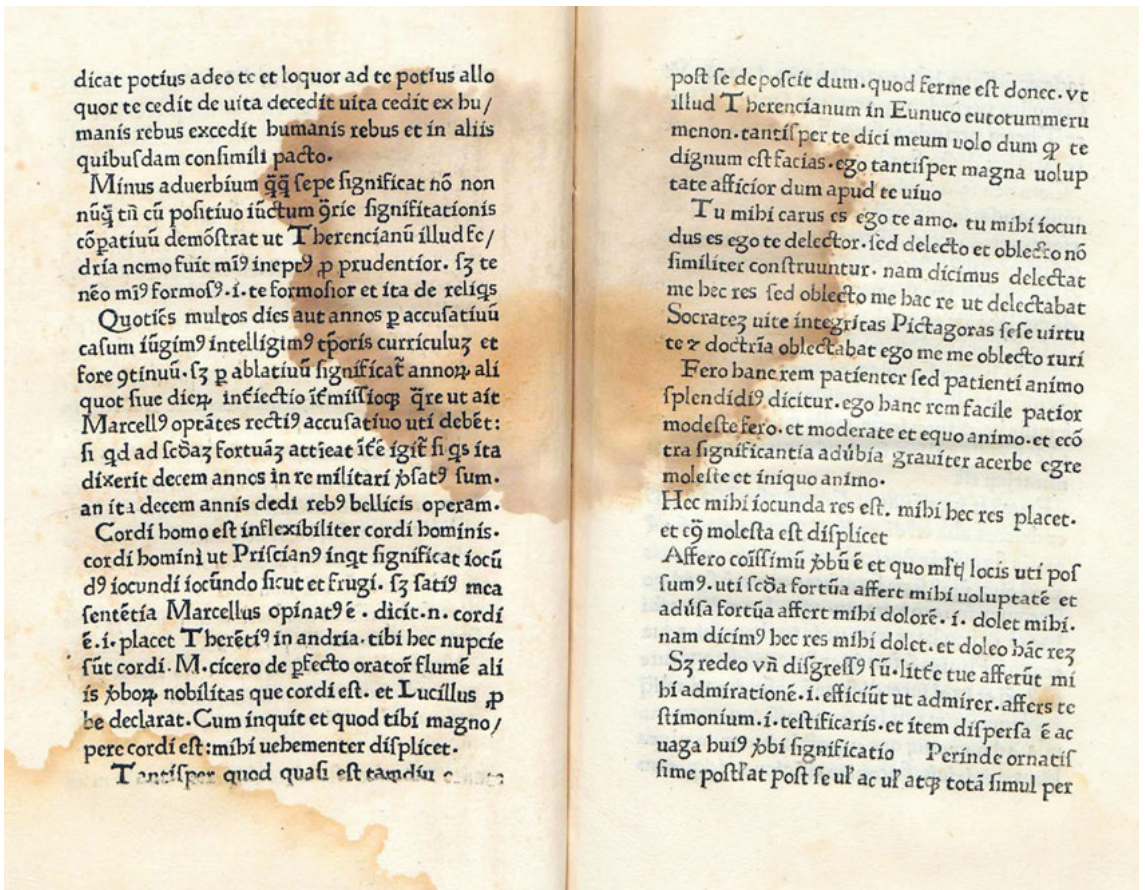 dicat potius adeo te et loquor ad te potius allo
quor te cedit de uita decedit uita cedit ex hu/
manis rebus excedit humanis rebus et in aliis
quibusdam consimili pacto.
Minus aduerbium q̄q̄ sepe significat nō non
nūq̄ tn̄ cū positiuo iūctum ꝯrie significationis
cōꝑatiuū demōstrat ut Therencianū illud fe/
dria nemo fuit miꝰ ineptꝰ ꝓ prudentior. sꝫ te
nēo miꝰ formosꝰ .i. te formosior et ita de reliqs
Quotiēs multos dies aut annos ꝑ accusatiuū
casum iūgimꝰ intelligimꝰ tp̄oris curriculuꝫ et
fore ꝯtinuū. sꝫ ꝑ ablatiuū significat̄ annoꝝ ali
quot siue dieꝝ int̄iectio it̄missioqꝫ q̄re ut ait
Marcellꝰ optātes rectiꝰ accusatiuo uti debēt:
si qd ad scd̄aꝫ fortuāꝫ attieat it̄ē igit̄ si qs ita
dixerit decem annos in re militari ꝟsatꝰ sum.
an ita decem annis dedi rebꝰ bellicis operam.
Cordi homo est inflexibiliter cordi hominis.
cordi homini ut Priscianꝰ inqt significat iocū
dꝰ iocundi iocūndo sicut et frugi. sꝫ satiꝰ mea
sentētia Marcellus opinatꝰ ē . dicit .n. cordi
ē .i. placet Therētiꝰ in andria. tibi hec nupcie
sūt cordi. M. cicero de ꝑfecto orator̄ flumē ali
is ꝟboꝝ nobilitas que cordi est. et Lucillus ꝓ
be declarat. Cum inquit et quod tibi magno/
pere cordi est: mihi uehementer displicet.
Tantisper quod quasi est tamdiu
post se deposcit dum. quod ferme est donec. vt
illud Therencianum in Eunuco eutotummeru
menon. tantisper te dici meum uolo dum ꝙ te
dignum est facias. ego tantisper magna uolup
tate afficior dum apud te uiuo
Tu mihi carus es ego te amo. tu mihi iocun
dus es ego te delector. sed delecto et oblecto nō
similiter construuntur. nam dicimus delectat
me hec res sed oblecto me hac re ut delectabat
Socrateꝫ uite integritas Pictagoras sese uirtu
te ⁊ doctria oblectabat ego me me oblecto ruri
Fero hanc rem patienter sed patienti animo
splendidiꝰ dicitur. ego hanc rem facile patior
modeste fero. et moderate et equo animo. et ecō
tra significantia adūbia grauiter acerbe egre
moleste et iniquo animo.
Hec mihi iocunda res est. mihi hec res placet.
et ꝯ molesta est displicet
Affero coīssimū ꝟbū ē et quo ml̄tꝭ locis uti pos
sumꝰ. uti scd̄a fortūa affert mihi uoluptatē et
adūsa fortūa affert mihi dolorē .i. dolet mihi.
nam dicimꝰ hec res mihi dolet. et doleo hāc reꝫ
Sꝫ redeo vn̄ disgressꝰ sū. litt̄e tue afferūt mi
hi admirationē .i. efficiūt ut admirer. affers te
stimonium .i. testificaris. et item dispersa ē ac
uaga huiꝰ ꝟbi significatio Perinde ornatis
sime postl̄at post se ul̄ ac ul̄ atqꝫ totā simul per